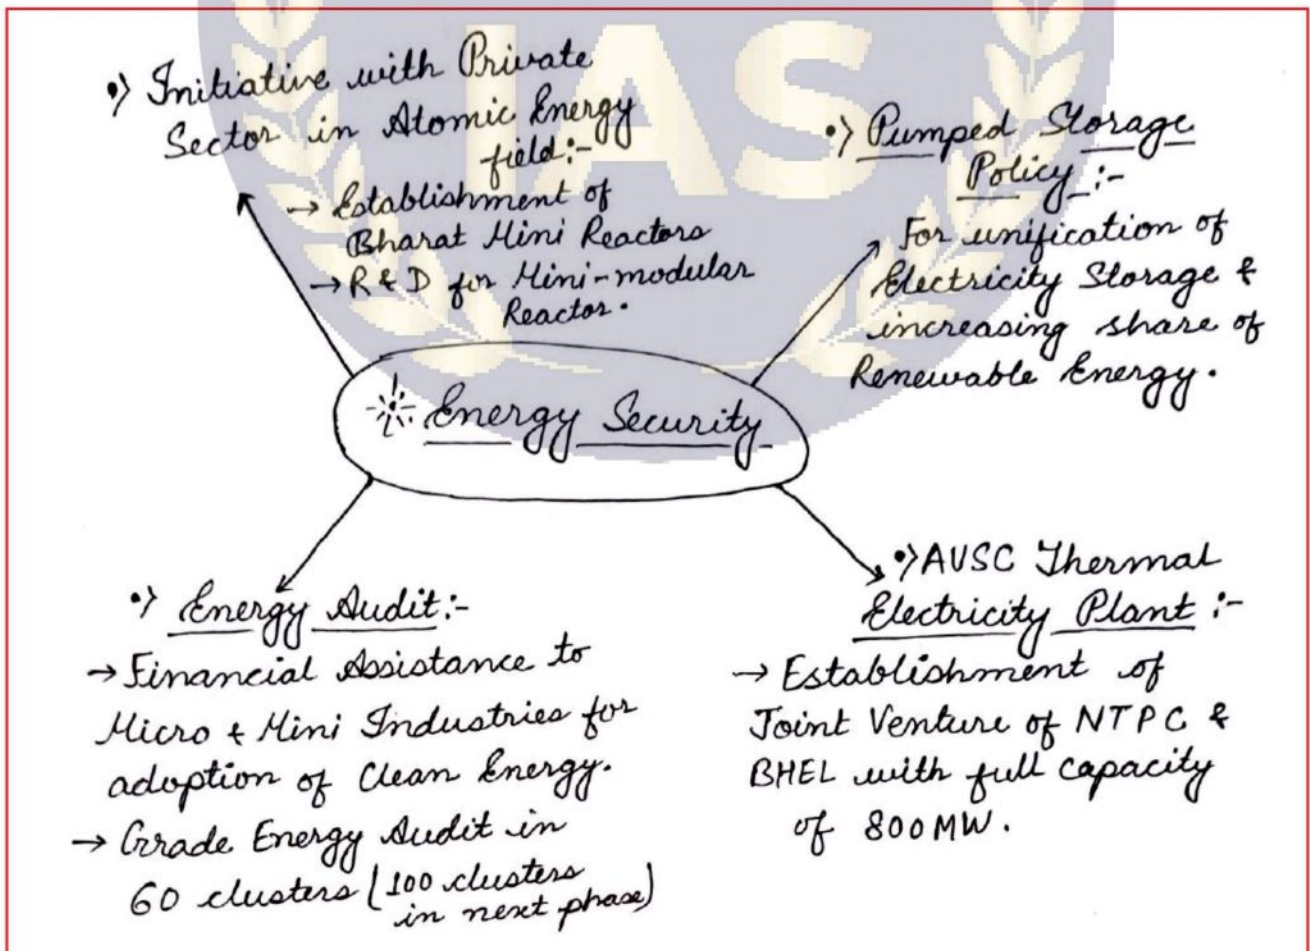 IAS
•) Initiative with Private
Sector in Atomic Energy
field:-
→ Establishment of
Bharat Mini Reactors
→ R & D for Mini-modular
Reactor.
•) Pumped Storage
Policy:-
For unification of
Electricity Storage &
increasing share of
Renewable Energy.
Energy Security
•) Energy Audit:-
→ Financial Assistance to
Micro & Mini Industries for
adoption of Clean Energy.
→ Grade Energy Audit in
60 clusters (100 clusters
in next phase)
•) AUSC Thermal
Electricity Plant:-
→ Establishment of
Joint Venture of NTPC &
BHEL with full capacity
of 800MW.